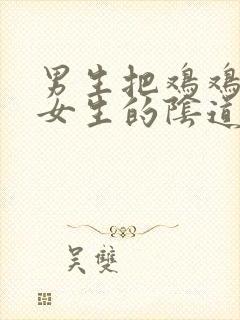 男生把鸡鸡
女生的陰道
吴雙